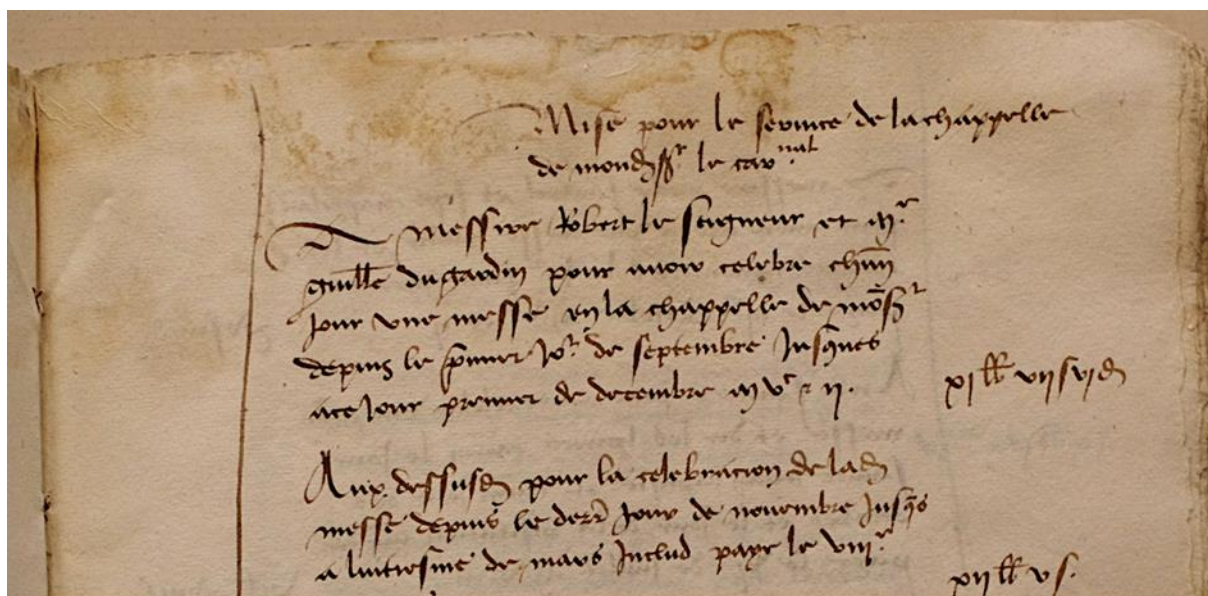 Mise pour le service de la chappelle
de mond sr le carnal
A messire Robert le seigneur et mr
guille dugardin pour avoir celebre chun
jour une messe en la chappelle de mosr
depuis le pmier jor de septembre jusques
a ce jour premier de decembre m vc & ii.
xi ll vii s vi d
Aux dessusd pour la celebracion de lad
messe depuis le derr jour de novembre jusqs
a luitiesme de mars includ paye le viiie
xii ll v s.